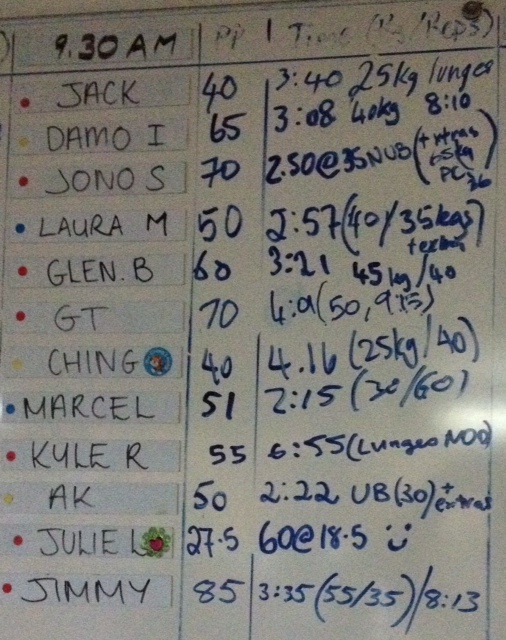 9.30 AM PP Time (Kg/Reps)
JACK 40 3:40 25kg lunges
DAMO I 65 3:08 40kg 8:10
JONO S 70 2.50@35NUB (+ xtras 65kg PC 36)
LAURA M 50 2:57 (40/35kgs) + extra
GLEN.B 60 3:21 45kg/40
GT 70 4:9 (50, 9:15)
CHING 40 4.16 (25kg/40)
MARCEL 51 2:15 (30/60)
KYLE R 55 6:55 (Lunges MOD)
AK 50 2:22 UB (30) + extras
JULIE L 27.5 60@18.5
JIMMY 85 3:35 (55/35) / 8:13